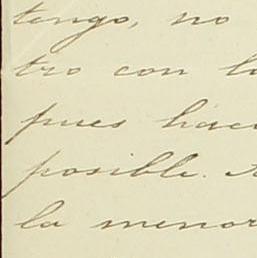 tengo, no
tro con l
pues hac
posible.
la menor